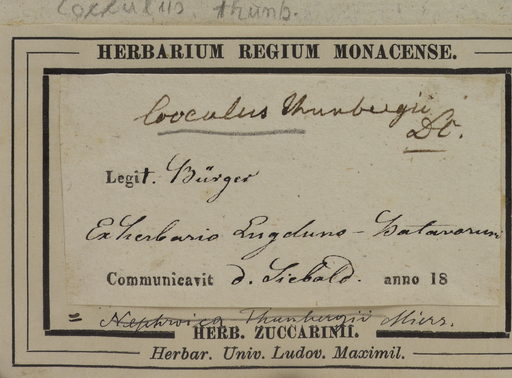 Cocculus thunb.
HERBARIUM REGIUM MONACENSE.
Cocculus Thunbergii
DC.
Legit. Bürger
Ex herbario Lugduno-Batavorum
Communicavit d. Siebold. anno 18
= Nephroica Thunbergii Miers.
HERB. ZUCCARINII.
Herbar. Univ. Ludov. Maximil.